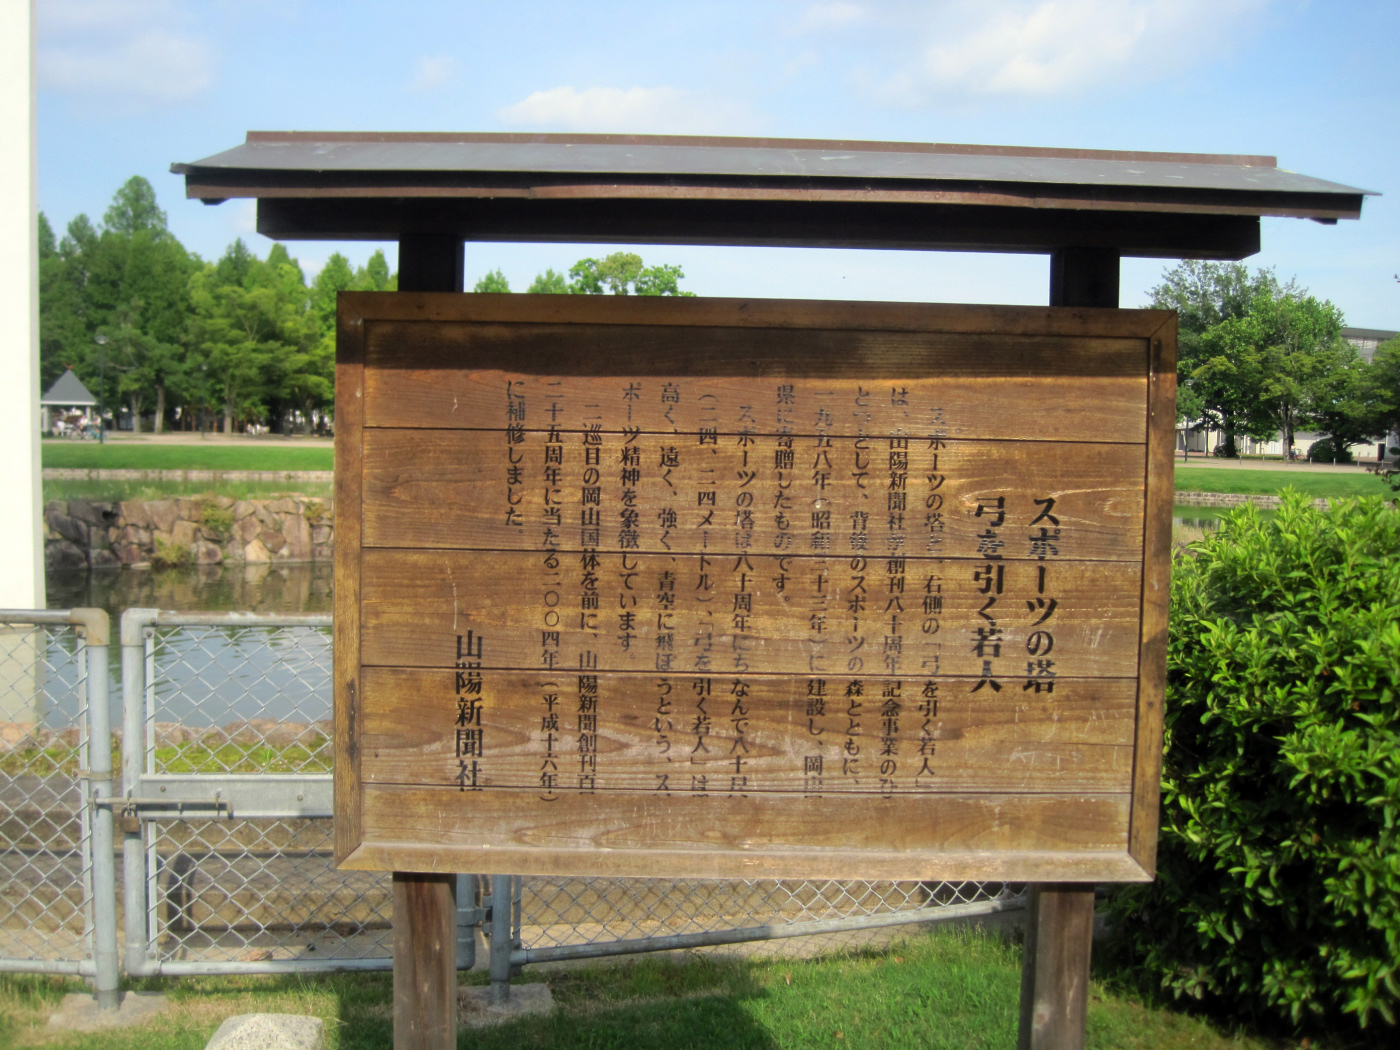 スポーツの塔
弓を引く若人
スポーツの塔と、右側の「弓を引く若人」
は、山陽新聞社が創刊八十周年記念事業のひ
とつとして、背後のスポーツの森とともに、
一九五八年(昭和三十三年)に建設し、岡山
県に寄贈したものです。
スポーツの塔は八十周年にちなんで八十尺
(二四、二四メートル)、「弓を引く若人」は
高く、遠く、強く、青空に飛ぼうという、ス
ポーツ精神を象徴しています。
二巡目の岡山国体を前に、山陽新聞創刊百
二十五周年に当たる二〇〇四年(平成十六年)
に補修しました。
山陽新聞社